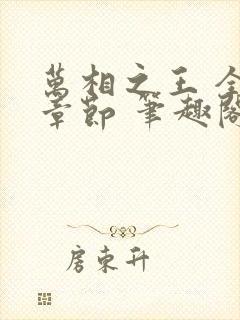 萬相之王 全
章節 筆趣閣
房東升